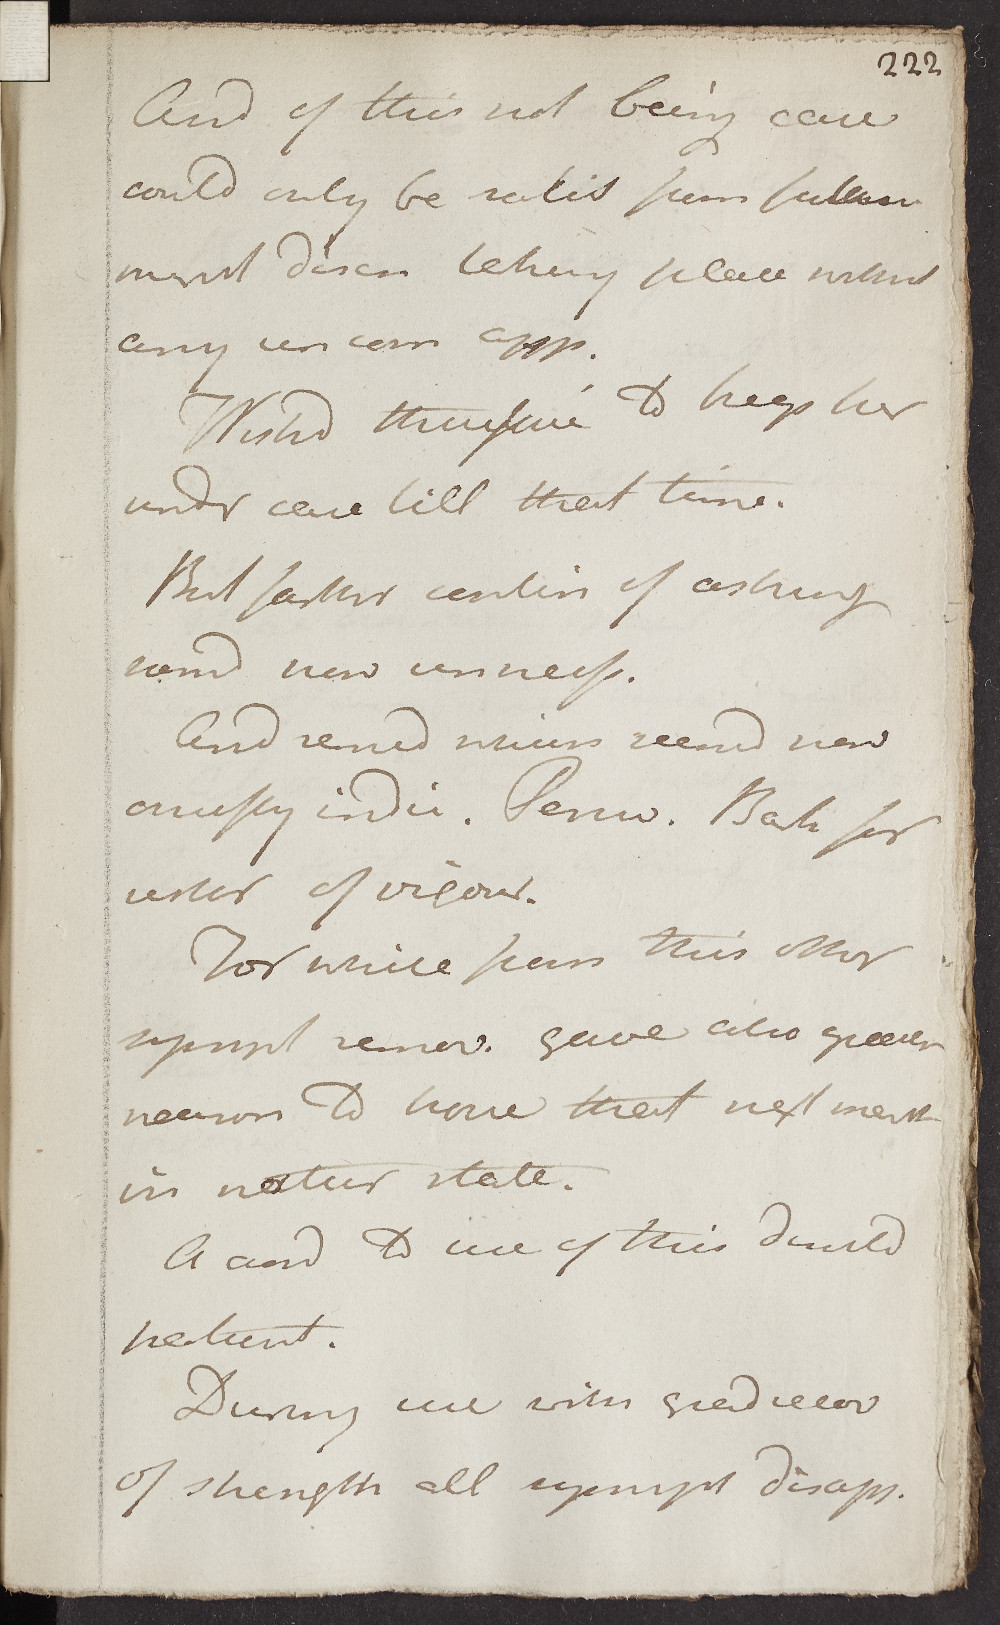 222
And of this not being case
could only be satisd from future
menst disch taking place without
any uncom app.
Wishd therefore to keep her
under care till that time.
But farther contin of astring
seemd now unnecess.
And remed which seemd now
chiefly indic. Peruv. Bark for
restor of vigour.
For while from this other
sympt remov. gave also greater
reason to hope that next menst
in natur state.
Accord to use of this directd
patient.
During use with grad recov
of strength all sympt disapp.